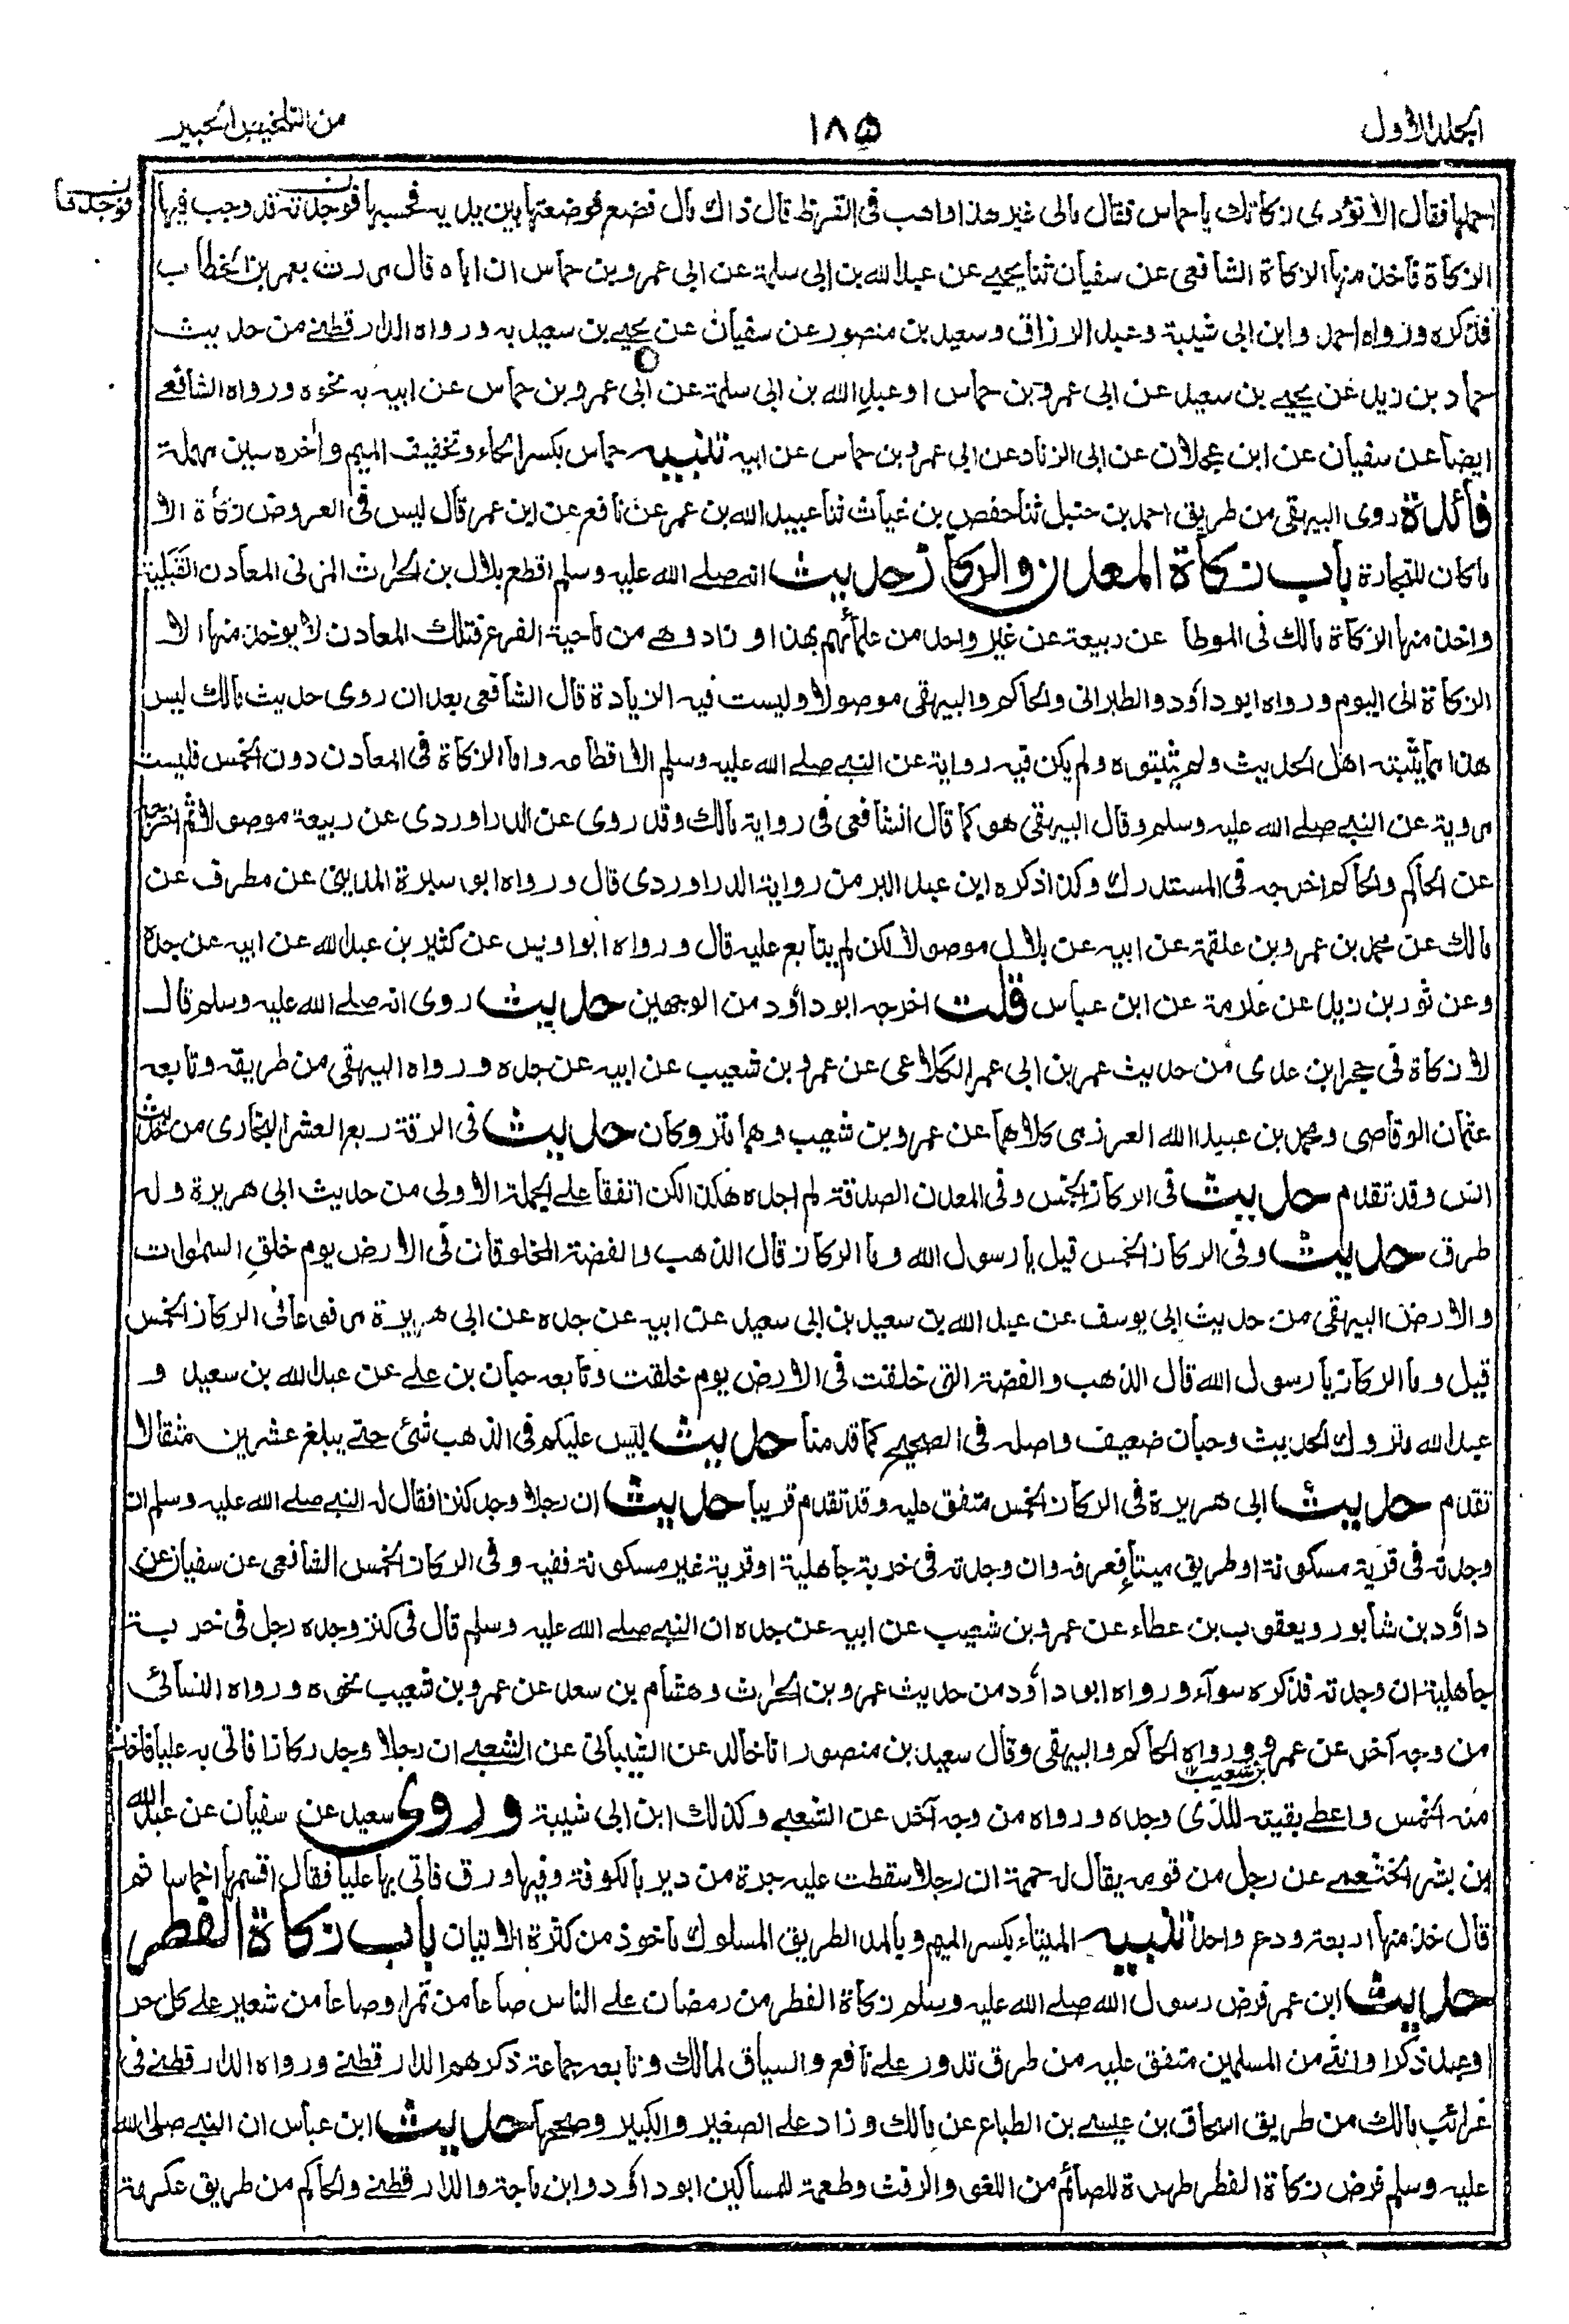 المجلد الاول
١٨٥
من التلخيص الحبير
احملها فقال الا تؤدى زكاتك يا حماس فقال مالى غير هذا واهب فى القرظ قال ذاك مال فضع فوضعتها بين يديه فحسبها فوجدته قد وجب فيها
فوجدنا
الزكاة فاخذ منها الزكاة الشافعى عن سفيان ثنا يحيى عن عبد الله بن ابى سلمة عن ابى عمرو بن حماس ان اباه قال مررت بعمر بن الخطاب
فذكره ورواه احمد وابن ابى شيبة وعبد الرزاق وسعيد بن منصور عن سفيان عن يحيى بن سعيد به ورواه الدارقطنى من حديث
حماد بن زيد عن يحيى بن سعيد عن ابى عمرو بن حماس او عبد الله بن ابى سلمة عن ابى عمرو بن حماس عن ابيه به نحوه ورواه الشافعى
ايضا عن سفيان عن ابن عجلان عن ابى الزناد عن ابى عمرو بن حماس عن ابيه تنبيه حماس بكسر الحاء وتخفيف الميم واخره سين مهملة
فائدة روى البيهقى من طريق احمد بن حنبل ثنا حفص بن غياث ثنا عبيد الله بن عمر عن نافع عن ابن عمر قال ليس فى العروض زكاة الا
ما كان للتجارة باب زكاة المعدن والركاز حديث انه صلى الله عليه وسلم اقطع بلال بن الحارث المزنى المعادن القبلية
واخذ منها الزكاة مالك فى الموطا عن ربيعة عن غير واحد من علمائهم بهذا وزاد وهى من ناحية الفرع فتلك المعادن لا يوخذ منها الا
الزكاة الى اليوم ورواه ابو داؤد والطبرانى والحاكم والبيهقى موصولا وليست فيه الزيادة قال الشافعى بعد ان روى حديث مالك ليس
هذا مما يثبته اهل الحديث ولم يثبتوه ولم يكن فيه رواية عن النبى صلى الله عليه وسلم الا اقطاعه واما الزكاة فى المعادن دون الخمس فليست
مروية عن النبى صلى الله عليه وسلم وقال البيهقى هو كما قال الشافعى فى رواية مالك وقد روى عن الدراوردى عن ربيعة موصولا ثم اخرجه
عن الحاكم والحاكم اخرجه فى المستدرك وكذا ذكره ابن عبد البر من رواية الدراوردى قال ورواه ابو سبرة المدينى عن مطرف عن
مالك عن محمد بن عمرو بن علقمة عن ابيه عن بلال موصولا لكن لم يتابع عليه قال ورواه ابو اويس عن كثير بن عبد الله عن ابيه عن جده
وعن ثور بن زيد عن عكرمة عن ابن عباس قلت اخرجه ابو داؤد من الوجهين حديث روى انه صلى الله عليه وسلم قال
لا زكاة فى حجر ابن عدى من حديث عمر بن ابى عمر الكلاعى عن عمرو بن شعيب عن ابيه عن جده ورواه البيهقى من طريقه وتابعه
عثمان الوقاصى ومحمد بن عبيد الله العرزمى كلاهما عن عمرو بن شعيب وهما متروكان حديث فى الرقة ربع العشر البخارى من حديث
انس وقد تقدم حديث فى الركاز الخمس وفى المعدن الصدقة لم اجده هكذا لكن اتفقا على الجملة الاولى من حديث ابى هريرة وله
طرق حديث وفى الركاز الخمس قيل يا رسول الله وما الركاز قال الذهب والفضة المخلوقان فى الارض يوم خلق السموات
والارض البيهقى من حديث ابى يوسف عن عبد الله بن سعيد بن ابى سعيد عن ابيه عن جده عن ابى هريرة مرفوعا فى الركاز الخمس
قيل وما الركاز يا رسول الله قال الذهب والفضة التى خلقت فى الارض يوم خلقت وتابعه حبان بن على عن عبد الله بن سعيد و
عبد الله متروك الحديث وحبان ضعيف واصله فى الصحيح كما قدمنا حديث ليس عليكم فى الذهب شئ حتى يبلغ عشرين مثقالا
تقدم حديث ابى هريرة فى الركاز الخمس متفق عليه وقد تقدم قريبا حديث ان رجلا وجد كنزا فقال له النبى صلى الله عليه وسلم ان
وجدته فى قرية مسكونة او طريق ميتاء فعرفه وان وجدته فى خربة جاهلية او قرية غير مسكونة ففيه وفى الركاز الخمس الشافعى عن سفيان عن
داؤد بن شابور ويعقوب بن عطاء عن عمرو بن شعيب عن ابيه عن جده ان النبى صلى الله عليه وسلم قال فى كنز وجده رجل فى خربة
جاهلية ان وجدته فذكره سوآء ورواه ابو داؤد من حديث عمرو بن الحارث وهشام بن سعد عن عمرو بن شعيب نحوه ورواه النسائى
من وجه آخر عن عمرو ورواه الحاكم والبيهقى وقال سعيد بن منصور انا خالد عن الشيبانى عن الشعبى ان رجلا وجد ركازا فاتى به عليا فاخذ
بن شعيب ١٢
منه الخمس واعطى بقيته للذى وجده ورواه من وجه آخر عن الشعبى وكذلك ابن ابى شيبة وروى سعيد عن سفيان عن عبد الله
بن بشر الخثعمى عن رجل من قومه يقال له حممة ان رجلا سقطت عليه جرة من دير بالكوفة وفيها ورق فاتى بها عليا فقال اقسمها اخماسا ثم
قال خذ منها اربعة ودع واحدا تنبيه الميتاء بكسر الميم وبالمد الطريق المسلوك ماخوذ من كثرة الاتيان باب زكاة الفطر
حديث ابن عمر فرض رسول الله صلى الله عليه وسلم زكاة الفطر من رمضان على الناس صاعا من تمر او صاعا من شعير على كل حر
او عبد ذكر او انثى من المسلمين متفق عليه من طرق تدور على نافع والسياق لمالك وتابعه جماعة ذكرهم الدارقطنى ورواه الدارقطنى فى
غرائب مالك من طريق اسحاق بن عيسى بن الطباع عن مالك وزاد على الصغير والكبير وصححها حديث ابن عباس ان النبى صلى الله
عليه وسلم فرض زكاة الفطر طهرة للصائم من اللغو والرفث وطعمة للمساكين ابو داؤد وابن ماجة والدارقطنى والحاكم من طريق عكرمة